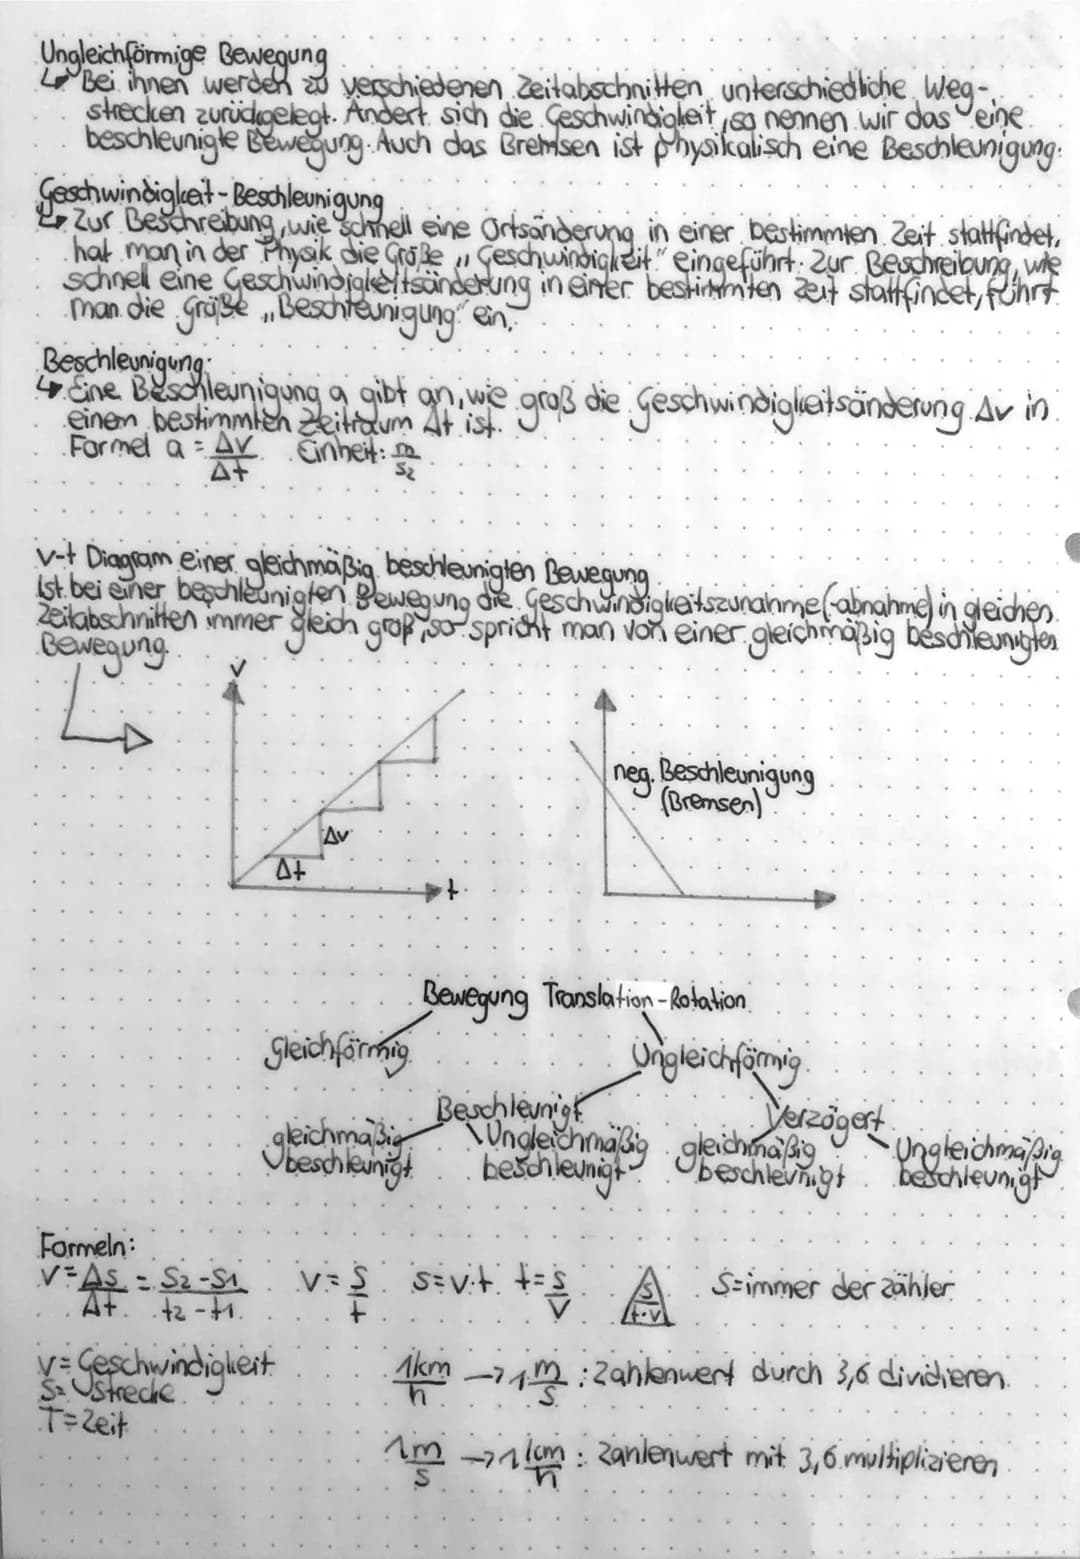 Ungleichförmige Bewegung
↳ Bei ihnen werden zu verschiedenen Zeitabschnitten unterschiedliche Weg-
strecken zurückgelegt. Ändert sich die Geschwindigkeit, so nennen wir das eine
beschleunigte Bewegung. Auch das Bremsen ist physikalisch eine Beschleunigung.
Geschwindigkeit - Beschleunigung
↳ Zur Beschreibung, wie schnell eine Ortsänderung in einer bestimmten Zeit stattfindet,
hat man in der Physik die Größe „Geschwindigkeit" eingeführt. Zur Beschreibung, wie
schnell eine Geschwindigkeitsänderung in einer bestimmten Zeit stattfindet, führt
man die Größe „Beschleunigung" ein.
Beschleunigung:
↳ Eine Beschleunigung a gibt an, wie groß die Geschwindigkeitsänderung Δv in
einem bestimmten Zeitraum Δt ist.
Formel a = Δv/Δt Einheit: m/s2
v-t Diagram einer gleichmäßig beschleunigten Bewegung
Ist bei einer beschleunigten Bewegung die Geschwindigkeitszunahme (-abnahme) in gleichen
Zeitabschnitten immer gleich groß, so spricht man von einer gleichmäßig beschleunigten
Bewegung.
v
neg. Beschleunigung
(Bremsen)
Δv
Δt
t
Bewegung Translation - Rotation
gleichförmig Ungleichförmig
Beschleunigt Verzögert
gleichmäßig Ungleichmäßig gleichmäßig Ungleichmäßig
beschleunigt beschleunigt beschleunigt beschleunigt
Formeln:
v = Δs/Δt = s2-s1/t2-t1 v = s/t s = v·t t = s/v s/t·v S = immer der zähler
v = Geschwindigkeit
S = Strecke
T = Zeit
1km/h → 1 m/s : Zahlenwert durch 3,6 dividieren
1m/s → 1 km/h : Zahlenwert mit 3,6 multiplizieren